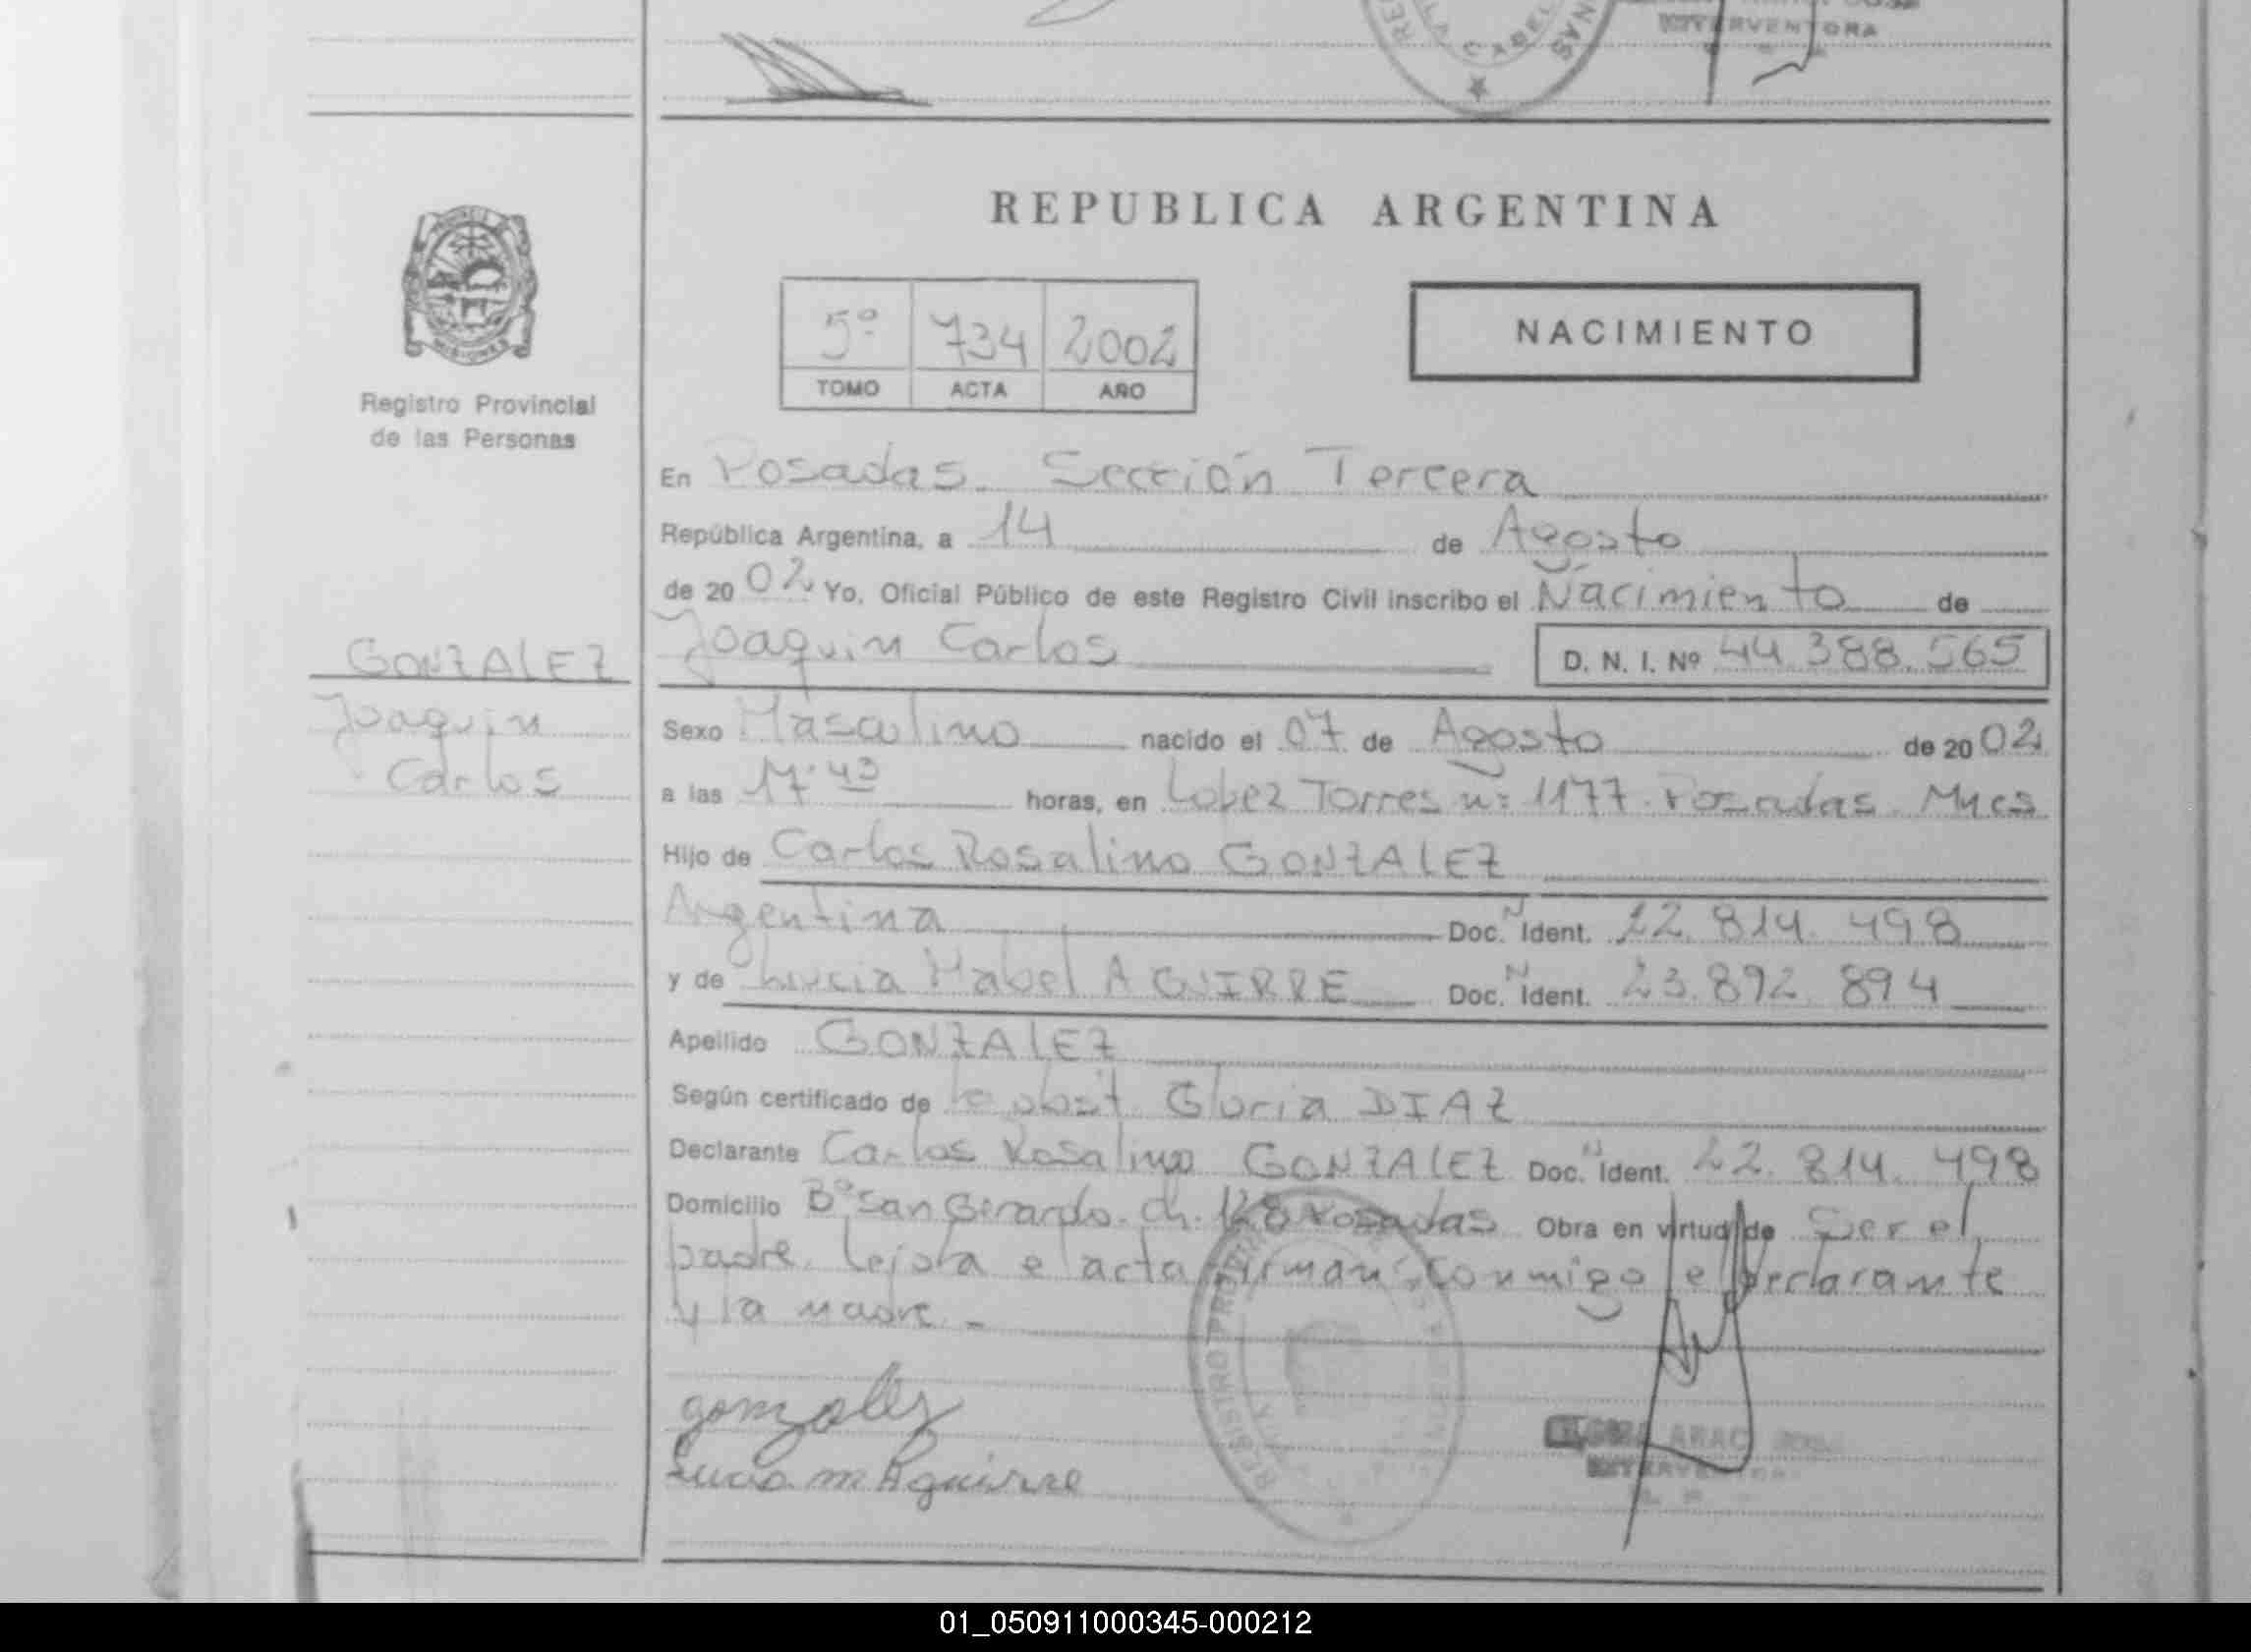 INTERVENTORA
REPUBLICA ARGENTINA
5º 734 2002
TOMO ACTA AÑO
NACIMIENTO
MISIONES
Registro Provincial
de las Personas
En Posadas. Sección Tercera
República Argentina, a 14 de Agosto
de 2002 Yo, Oficial Público de este Registro Civil inscribo el Nacimiento de
GONZALEZ
Joaquin
Carlos
Joaquin Carlos D. N. I. Nº 44.388.565
Sexo Masculino nacido el 07 de Agosto de 2002
a las 17.43 horas, en Lopez Torres nº 1177. Posadas. Mnes
Hijo de Carlos Rosalino GONZALEZ
Argentina Doc. N Ident. 22.814.498
y de Lucia Mabel AGUIRRE Doc. N Ident. 23.892.894
Apellido GONZALEZ
Según certificado de la obst. Gloria DIAZ
Declarante Carlos Rosalino GONZALEZ Doc. N Ident. 22.814.498
Domicilio Bº San Gerardo. Ch. 128 Posadas Obra en virtud de Ser el
padre. Leida el acta firman conmigo el declarante
y la madre. -
gonzalez
Lucia m Aguirre
REGISTRO PROVINCIAL
INTERVENTORA
01_050911000345-000212